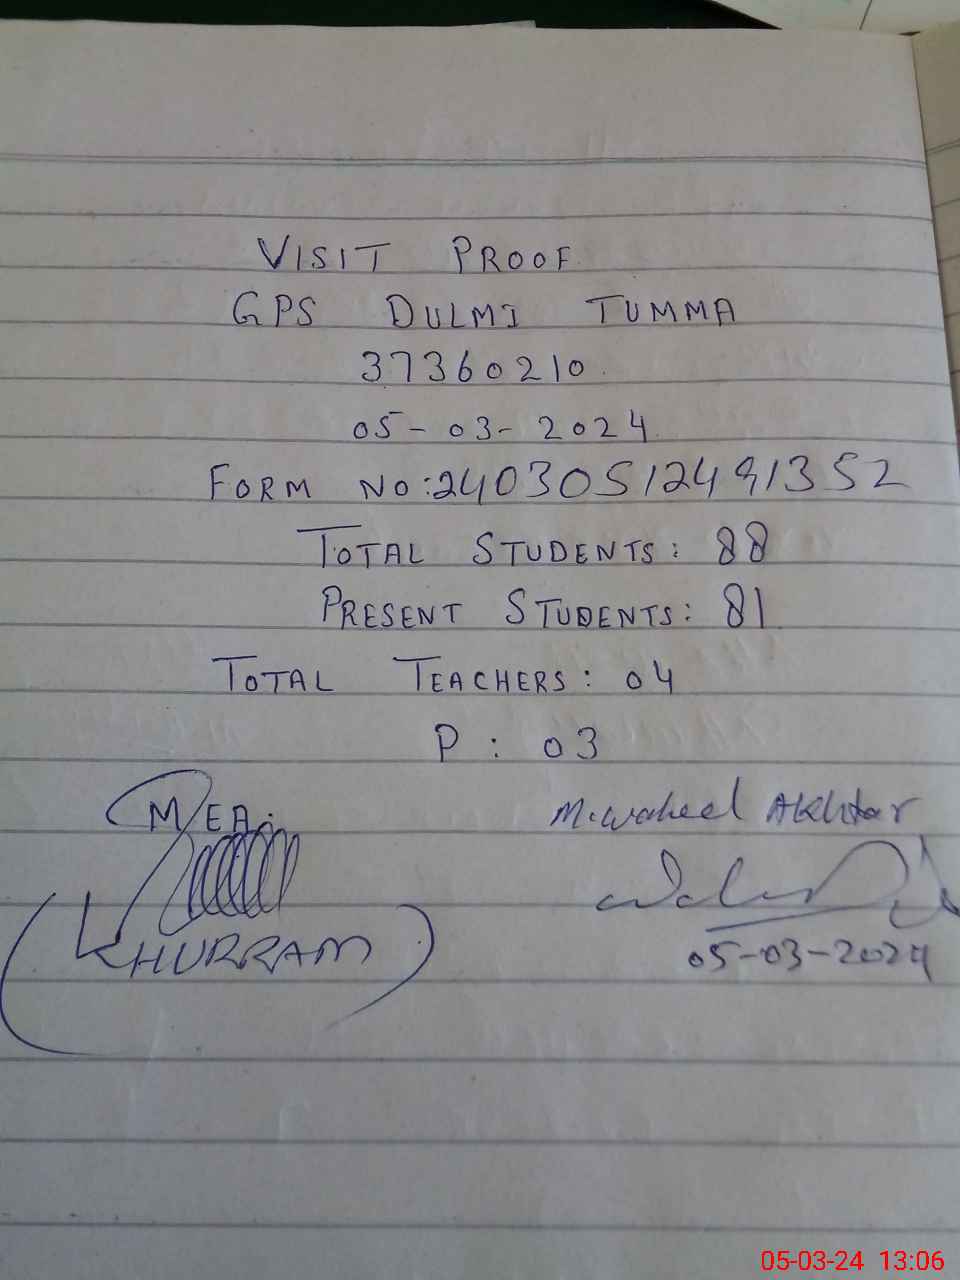 VISIT PROOF
GPS DULMI TUMMA
37360210
05-03-2024
FORM NO:24030512491352
TOTAL STUDENTS: 88
PRESENT STUDENTS: 81
TOTAL TEACHERS: 04
P : 03
MEA
M.waheed Akhtar
(KHURRAM)
05-03-2024
05-03-24 13:06